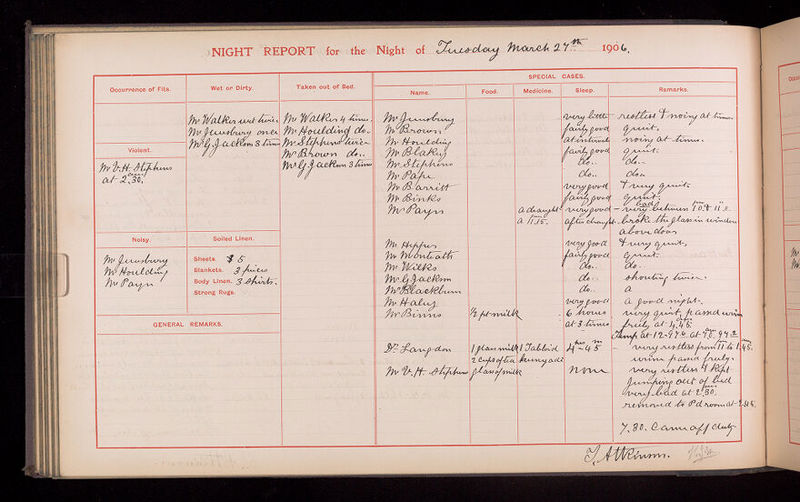 NIGHT REPORT for the Night of Tuesday March 27th 1906.
SPECIAL CASES.
Occurrence of Fits.
Wet or Dirty.
Taken out of Bed.
Name.
Food.
Medicine.
Sleep.
Remarks.
Mr Walker wet twice
Mr Jewsbury once
Mr G Jackson 3 times
Mr Walker 4 times.
Mr Houlding do.
Mr Stephens twice
Mr Brown do.
Mr G Jackson 3 times
Violent.
Mr V. H. Stephens
at 2.30.
Noisy.
Mr Jewsbury
Mr Houlding
Mr Payn
Soiled Linen.
Sheets. 5
Blankets. 3 pieces
Body Linen. 3 Shirts.
Strong Rugs.
GENERAL REMARKS.
Mr Jewsbury very little restless & noisy at times.
Mr Brown fairly good quiet.
Mr Houlding at intervals noisy at times.
Mr Blakey fairly good quiet.
Mr Stephens do. do.
Mr Pape do. do.
Mr Barritt very good & very quiet.
Mr Binks fairly good quiet.
Mr Payn a draught very good very bad between 10 & 11
a 11.15. after draught broke the glass in window
above door
Mr Hepper very good & very quiet.
Mr Monteath fairly good quiet.
Mr Wilks do. do.
Mr G Jackson do. shouting twice.
Mr Blackburn do. a
Mr Haley very good a good night.
Mr Binns ½ pt milk 6 hours very quiet, passed urine
at 3 times freely at 4.45
Dr Langdon 1 glass milk 1 Tabloid 4 hrs 45 m very restless from 11 to 1.45.
2 cups of tea urine passed freely.
Mr V. H. Stephens glass of milk none very restless & kept
jumping out of bed
very bad at 2.30.
removed to Pd room at
7.30. Came off duty
T. Atkinson.